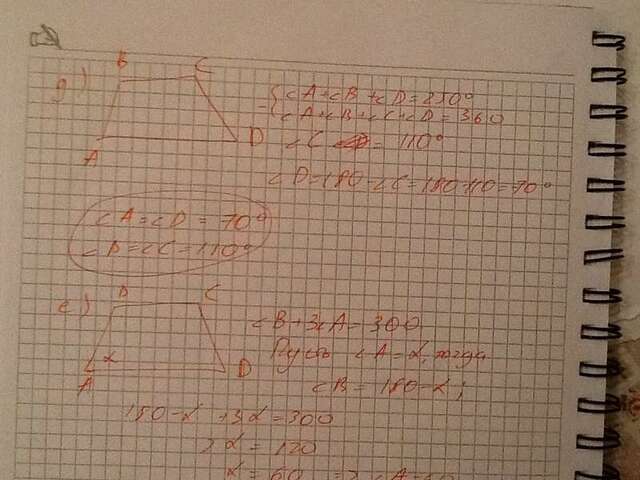 д)
B C
A D
∠A+∠B+∠D=250°
∠A+∠B+∠C+∠D=360
∠C = 110°
∠D=180-∠C=180-110=70°
∠A=∠D=70°
∠B=∠C=110°
е)
B C
A α D
∠B+3∠A=300
Пусть ∠A=α, тогда
∠B=180-α;
180-α+3α=300
2α=120
α=60 => ∠A=60